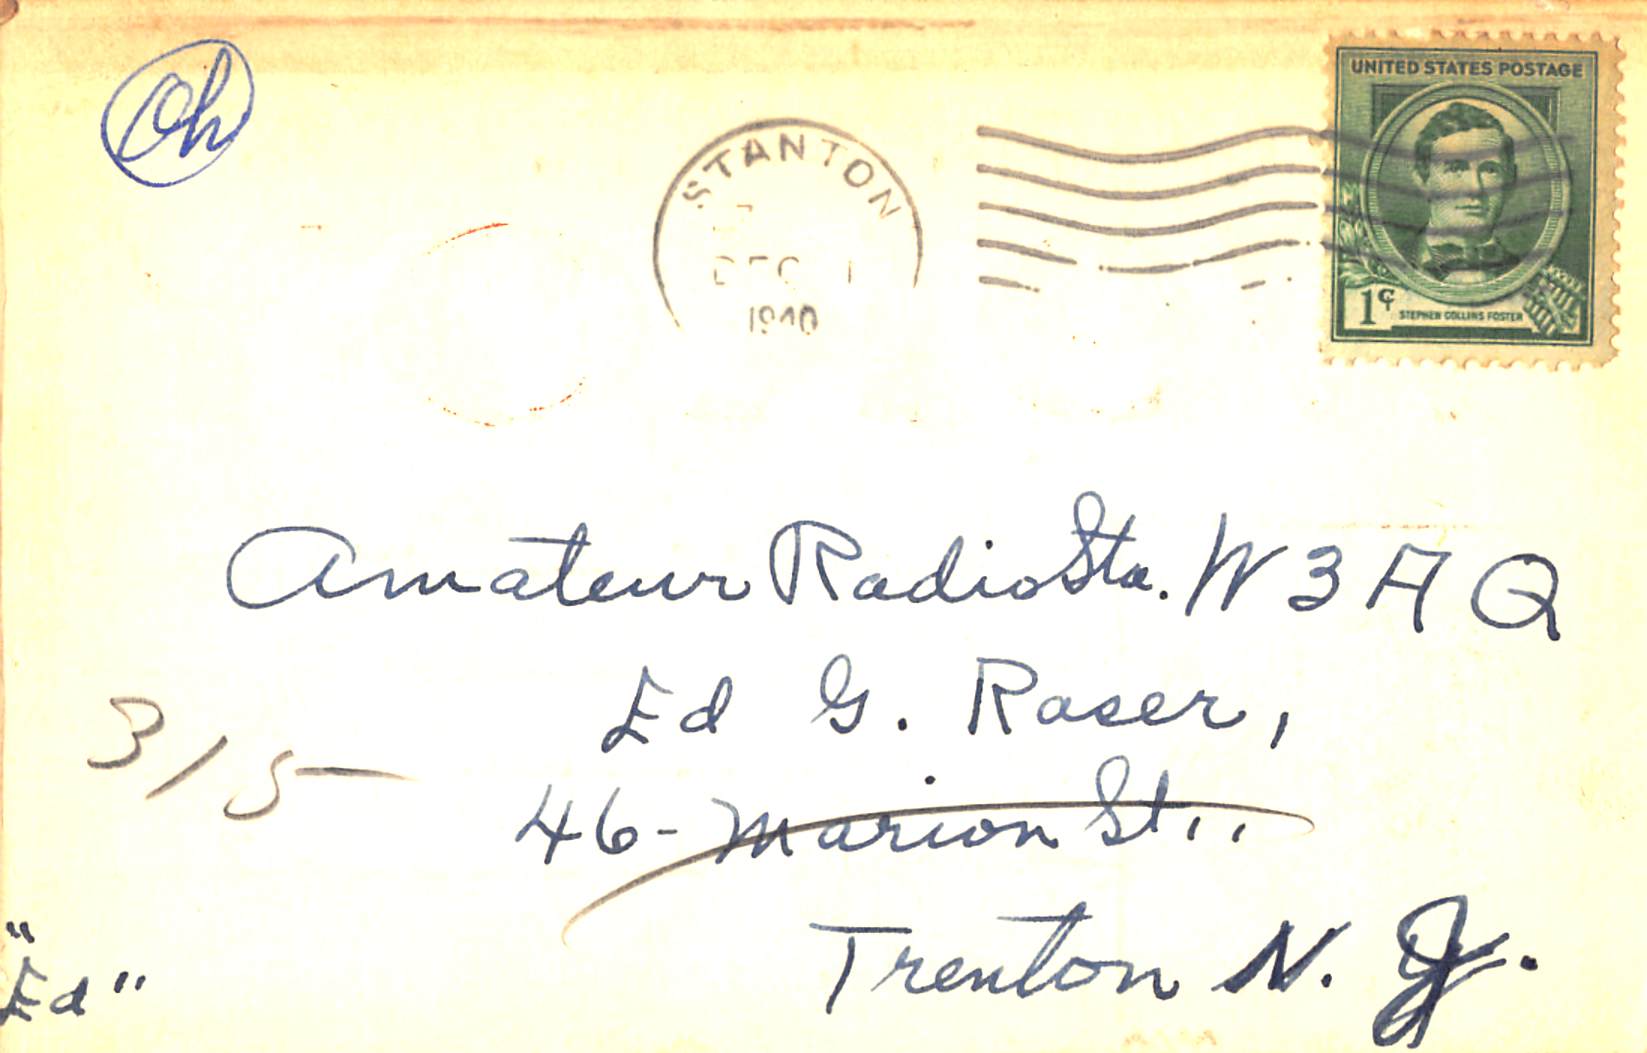 Oh
UNITED STATES POSTAGE
STANTON
DEC 1
1940
1¢
STEPHEN COLLINS FOSTER
Amateur Radio Sta. W3AQ
Ed G. Raser,
315
46-Marion St.,
"Ed"
Trenton N. J.